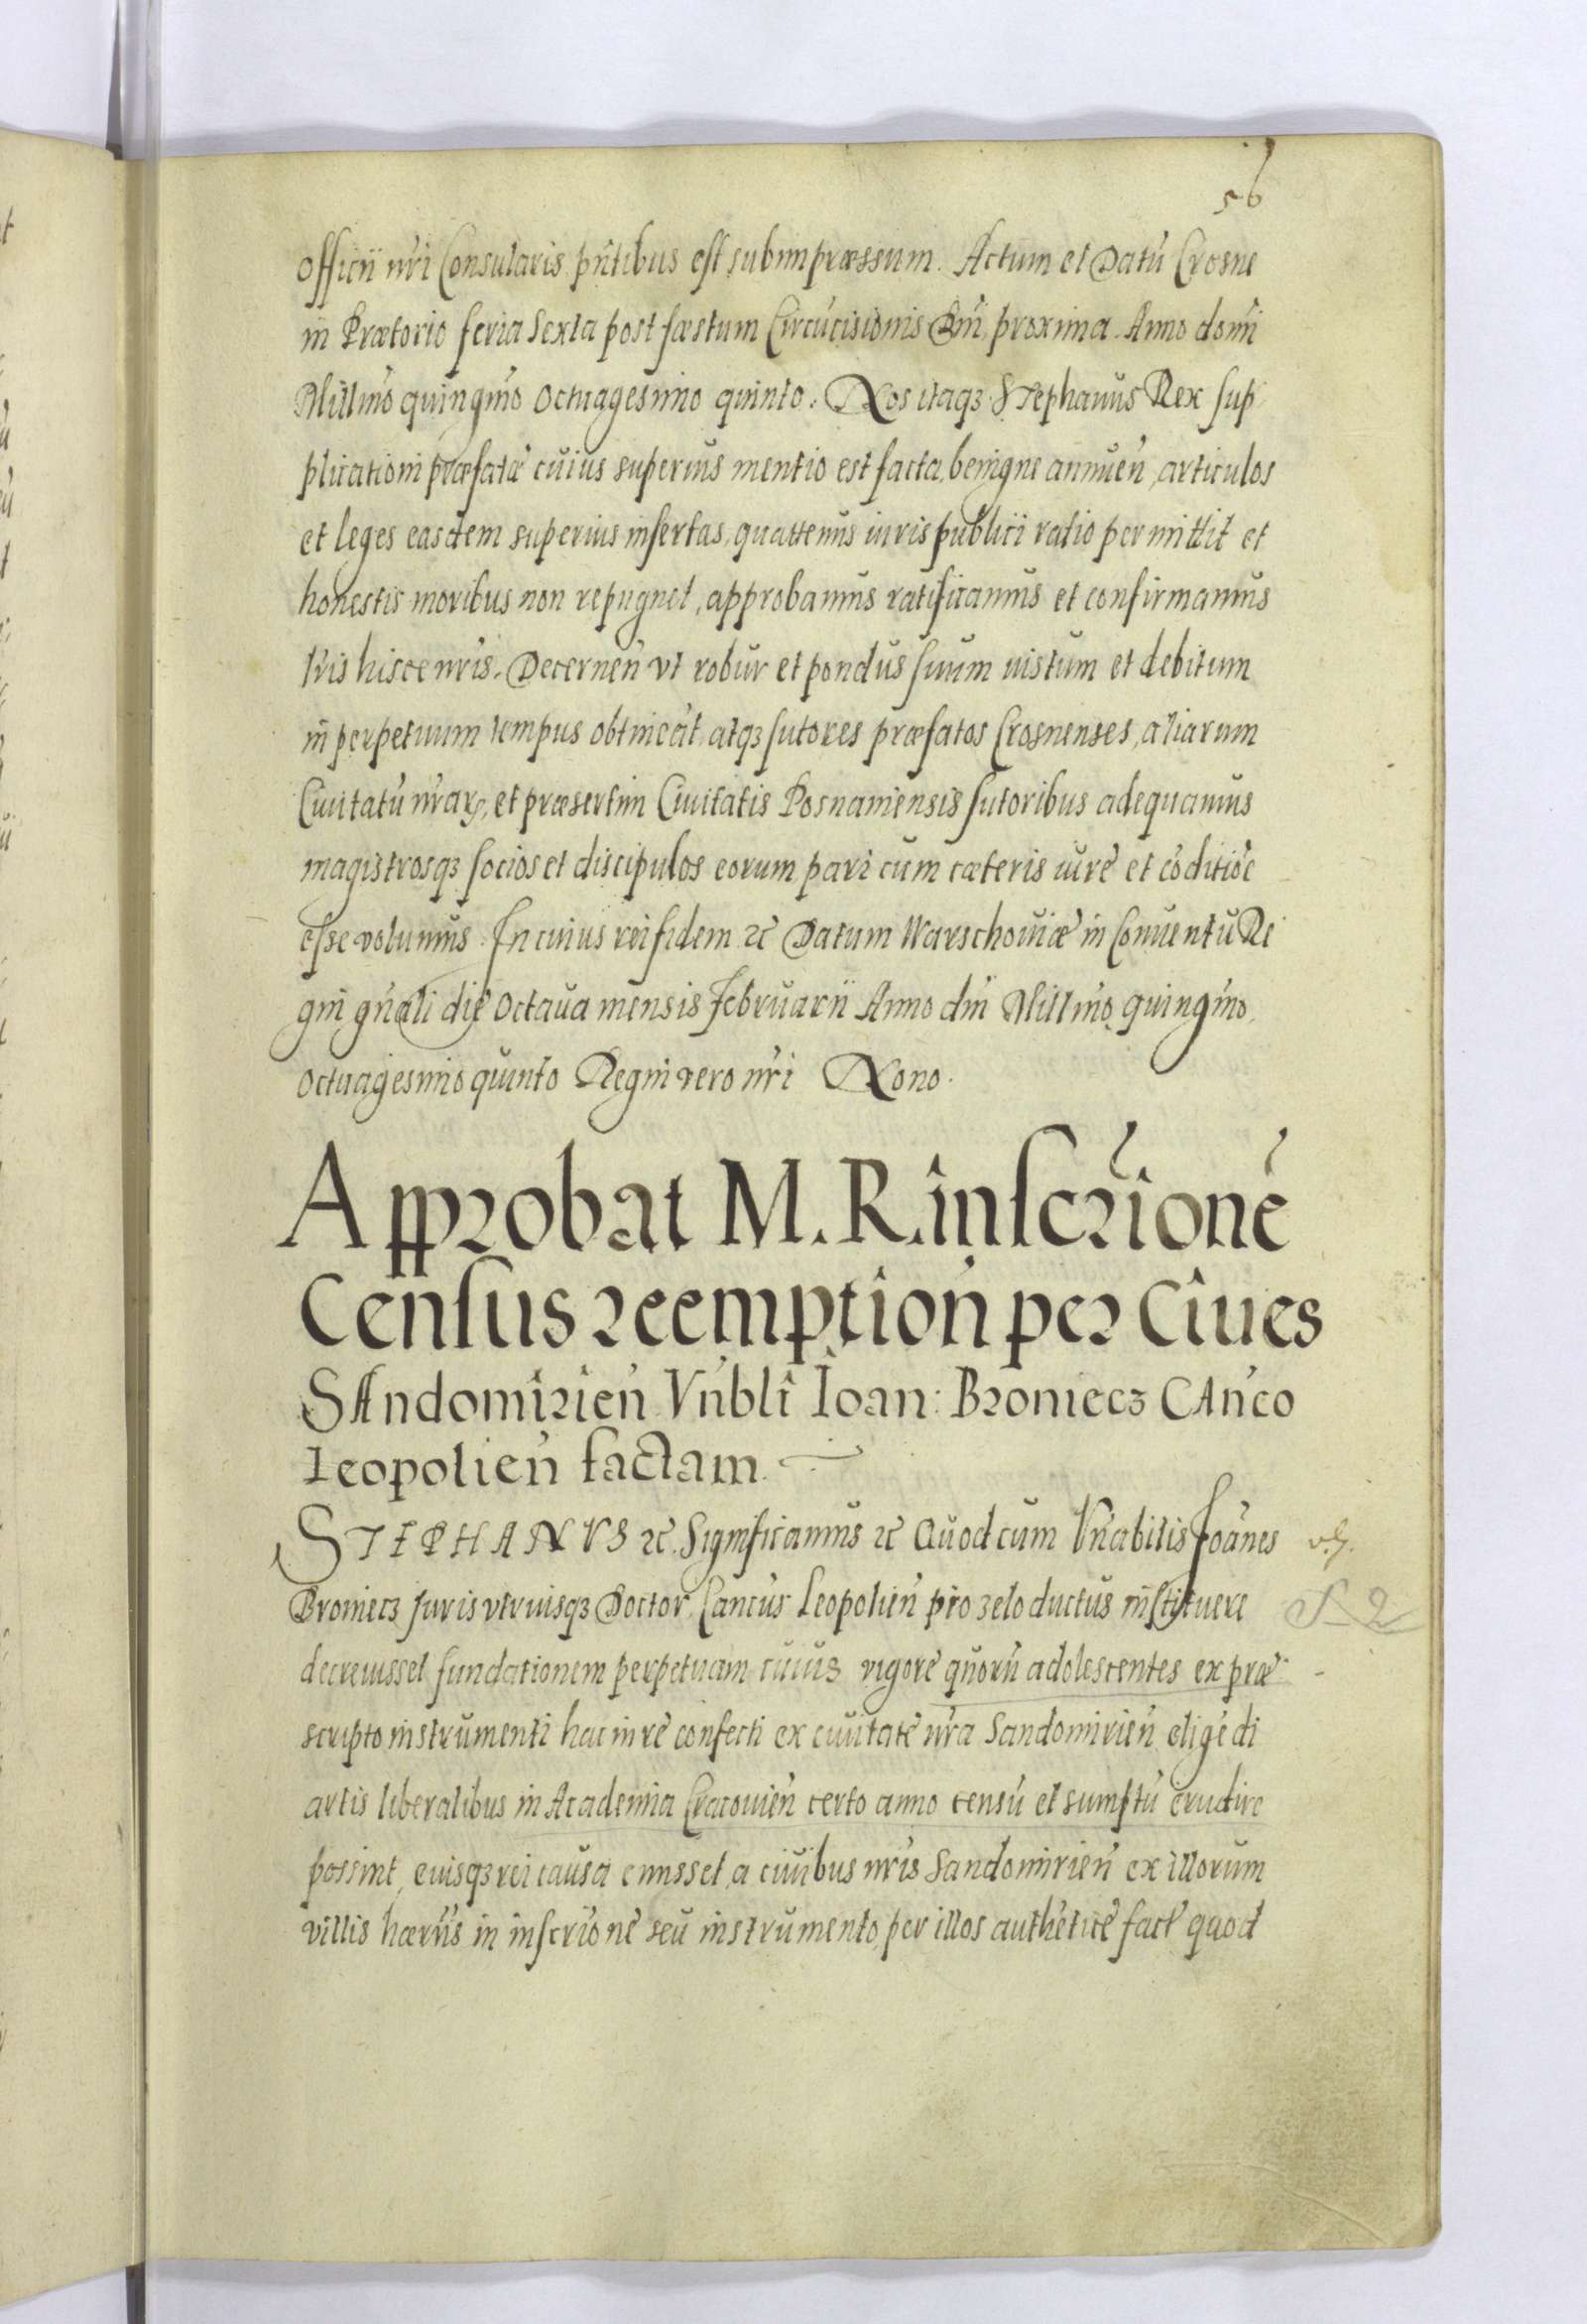 56
officii nr̃i Consularis pñtibus est subimpræssum. Actum et Datũ Crosnę
in Prætorio feria Sexta post fæstum Circũcisionis Dñi, proxima. Anno domĩ
Millmõ quingmõ Octuagesimo quinto. Nos itaqꝫ Stephanus Rex sup
plicationi præfatæ cuius superius mentio est facta, benigne annuẽn, articulos
et leges easdem superius insertas, quattenus iuris publici ratio permittit et
honestis moribus non repugnet, approbamus ratificamus et confirmamus
lr̃is hisce nr̃is. Decernẽn vt robur et pondus suum iustum et debitum
in perpetuum tempus obtineãt, atqꝫ sutores præfatos Crosnenses, aliarum
Ciuitatũ nr̃arꝝ, et præsertim Ciuitatis Posnaniensis sutoribus adequamus
magistrosqꝫ socios et discipulos eorum pari cum cæteris iure et cõditiõe
esse volumus. In cuius rei fidem ⁊c̃ Datum Warschouiæ in Conuentu Re
gni gñali die Octaua mensis Februarii Anno dñi Millmõ quingmõ
Octuagesimo quinto Regni vero nr̃i Nono.
Approbat M. R. inscrĩonẽ
Census reemptioñ per Ciues
SAndomirieñ Vñbli Ioan: Broniecz CAnco
Leopolieñ factam
STEPHANVS ⁊c̃. Significamus ⁊c̃ Quod cum Vñabilis Joãnes
Broniecz Juris vtriusqꝫ Doctor, Cancus Leopolieñ pio zelo ductus instituere
decreuisset fundationem perpetuam cuius vigore quorũ adolescentes ex præ
scripto instrumenti hac in re confecti ex ciuitate nr̃a Sandomirieñ eligẽdi
artis liberalibus in Academia Cracouieñ certo anno censu et sumptu erudire
possint, euisqꝫ rei causa emisset, a ciuibus nr̃is Sandomirieñ ex illorum
villis hærĩis in inscrĩone seu instrumento per illos authẽtice fact̃ quod